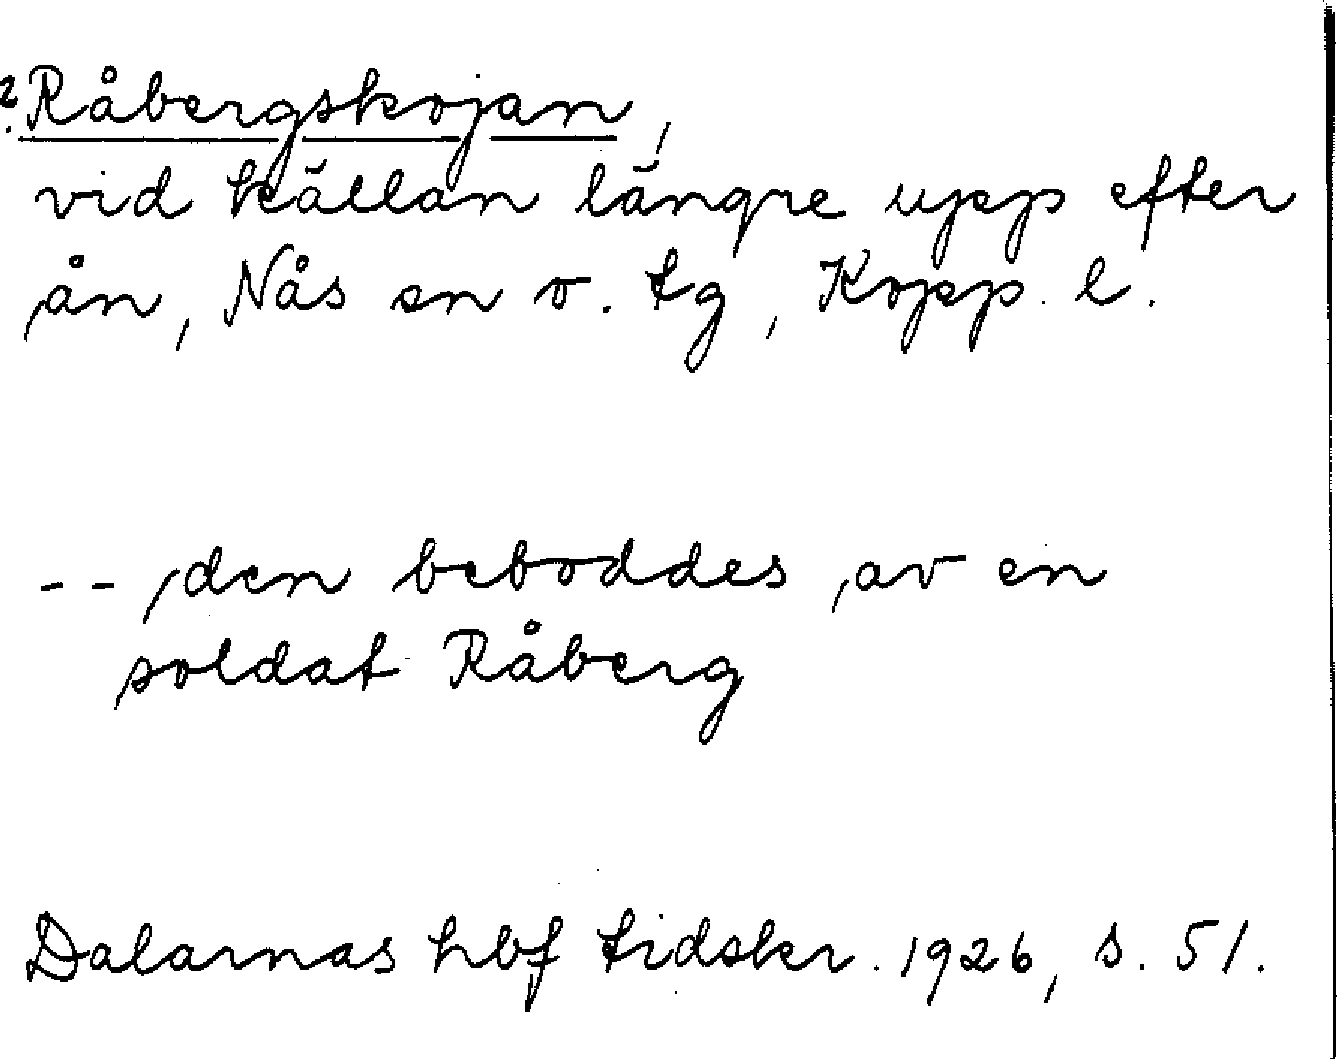 ? Råbergskojan,
vid källan längre upp efter
ån, Nås sn o. tg, Kopp. l.
-- den beboddes av en
soldat Råberg
Dalarnas hbf tidskr. 1926, s. 51.